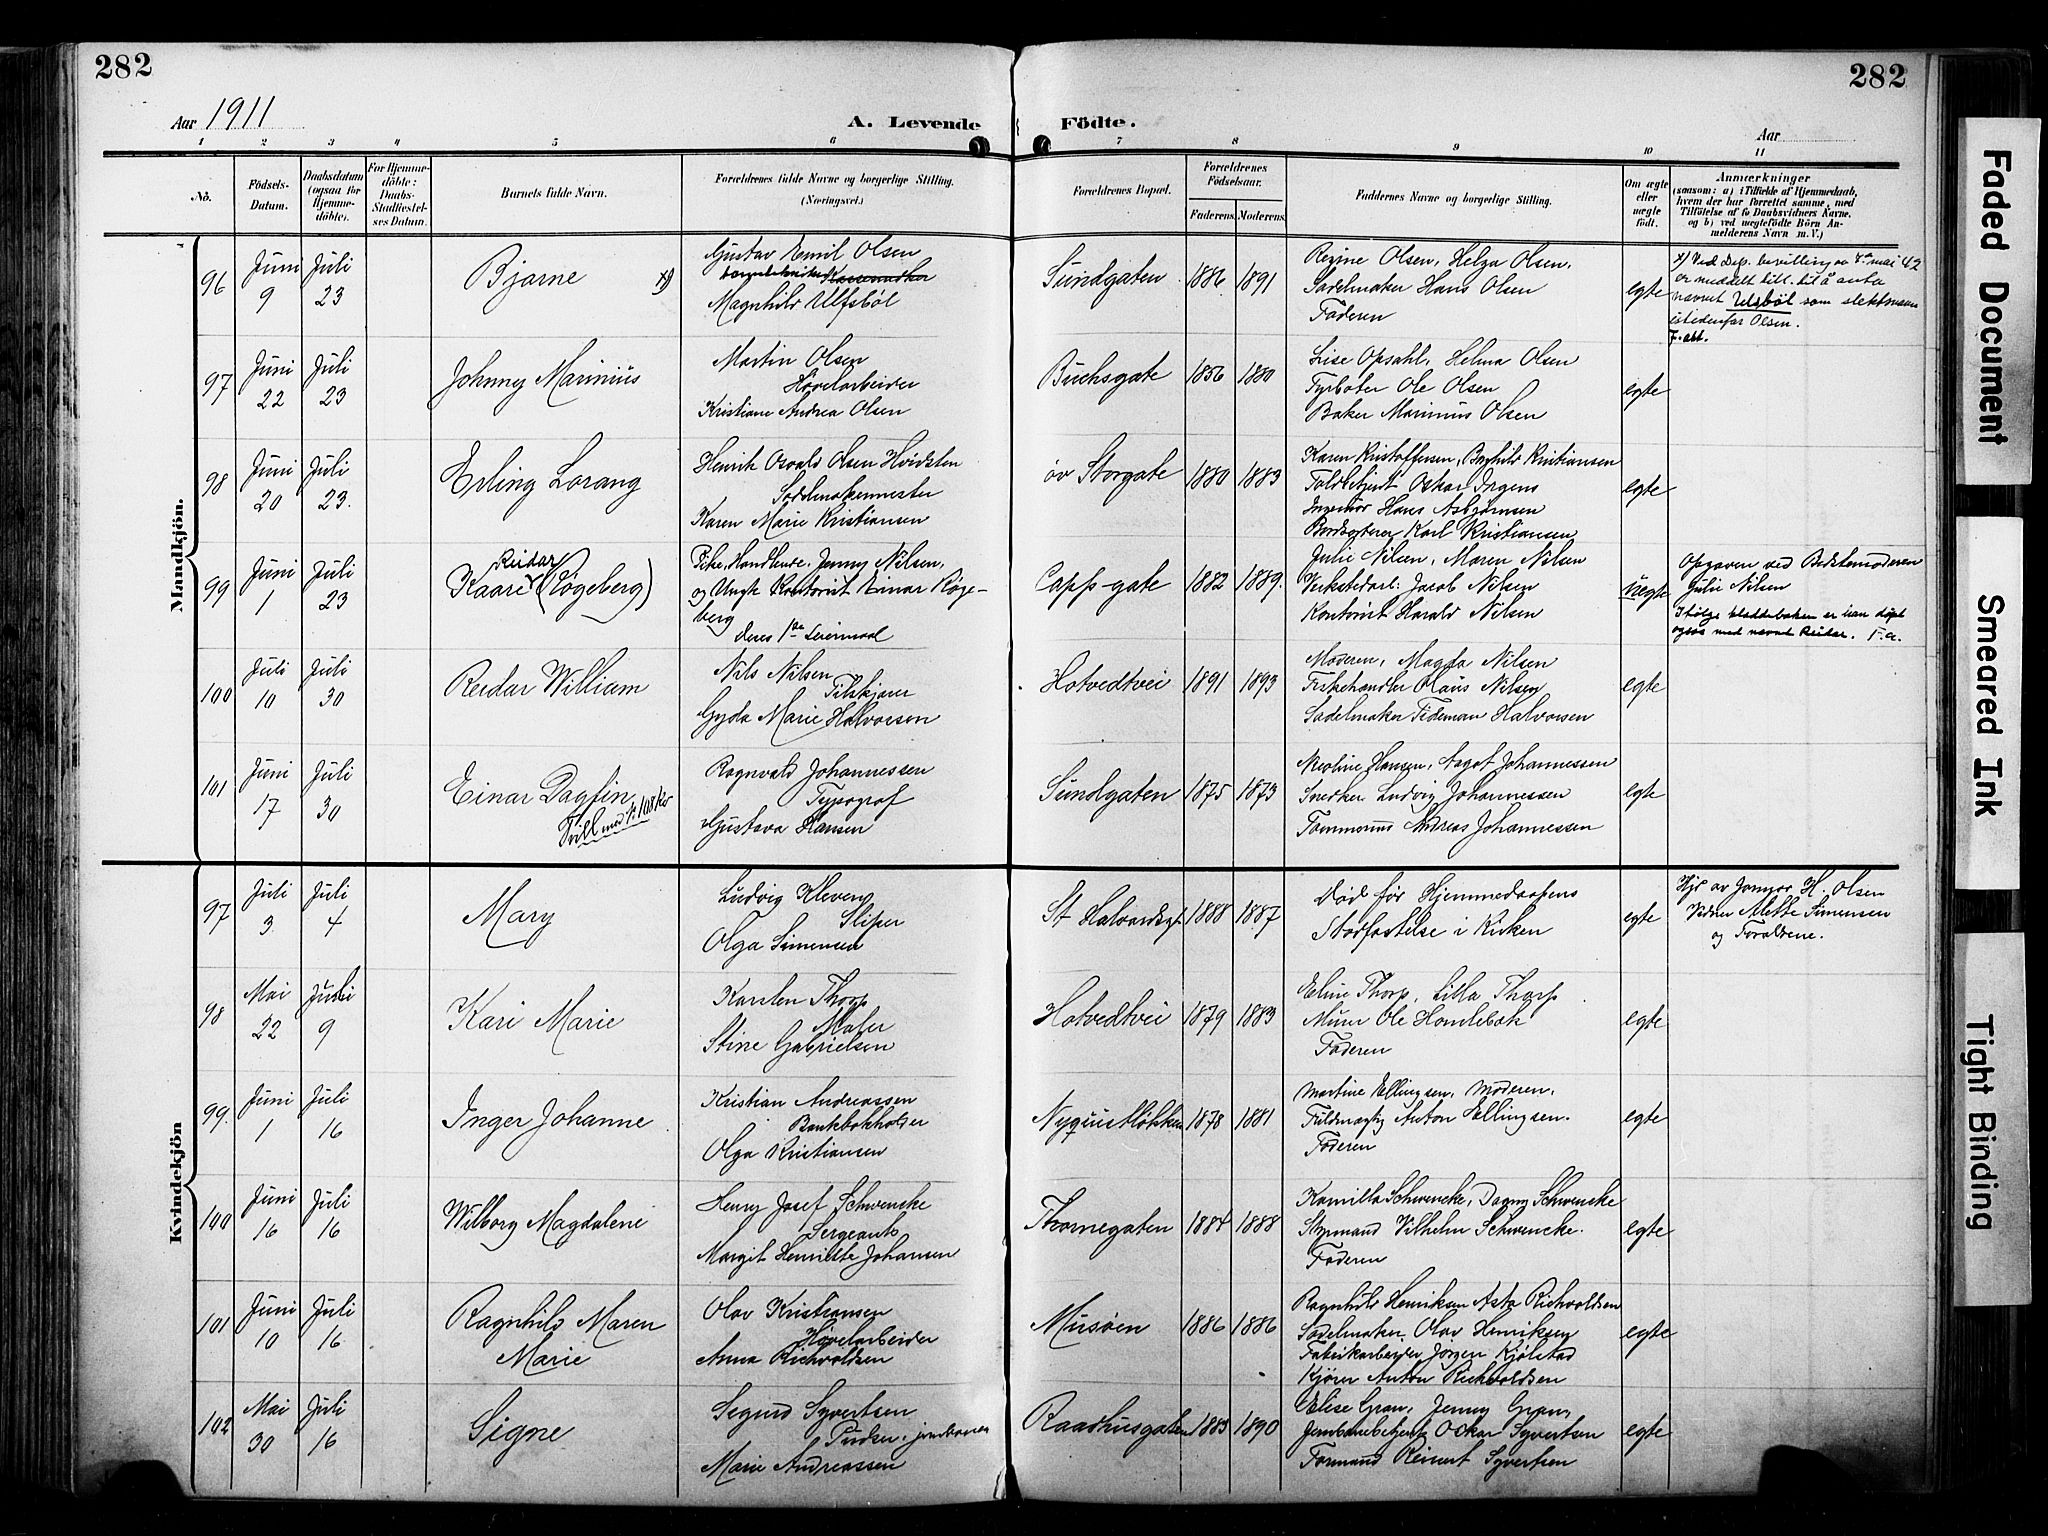 282
282
Aar 1911
A. Levende Födte.
Aar
1 2 3 4 5 6 7 8 9 10 11
No.
Födsels-Datum.
Daabsdatum (ogsaa for Hjemme-döbte).
For Hjemme-döbte: Daabs-Stadfæstel-ses Datum.
Barnets fulde Navn.
Forældrenes fulde Navne og borgerlige Stilling. (Næringsvei.)
Forældrenes Bopæl.
Forældrenes Födselsaar.
Faderens. Moderens.
Faddernes Navne og borgerlige Stilling.
Om ægte eller uægte födt.
Anmærkninger
(saasom: a) i Tilfælde af Hjemmedaab, hvem der har forrettet samme, med Tilföielse af to Daabsvidners Navne, og b) ved uægtefödte Börn Anmelderens Navn m. V.)
Mandkjön.
96 Juni 9 Juli 23 Bjarne x)
Gustav Emil Olsen
Magnhild Ulfsbøl
Sundgaten 1886 1891
Regine Olsen, Helga Olsen,
Sadelmaker Hans Olsen
Faderen
egte
x) Ved Dep. bevilling av 4de mai 42
er meddelt till. til å anta
navnet Ulsbøl som slektsnavn
istedenfor Olsen.
97 Juni 22 Juli 23 Johnny Marinius
Martin Olsen
Høvelarbeider
Kristiane Andrea Olsen
Buchsgate 1856 1880
Lise Opsahl, Helma Olsen
Fyrbøter Ole Olsen
Baker Marinius Olsen
egte
98 Juni 20 Juli 23. Erling Lorang
Henrik Osvald Olsen Hvidsten
Sadelmakermester
Karen Marie Kristiansen
øv Storgate 1880 1883
Karen Kristoffersen, Borghild Kristiansen
Toldbetjent Oskar Jrgens
Ingeniør Hans Asbjørnsen
Karl Kristiansen
egte
99 Juni 1 Juli 23 Kaare Reidar (Røgeberg)
Pike, Handlende, Jenny Nilsen,
og Ungk Kontorist Einar Røge-
berg
deres 1ste Leiermaal
Capps-gate 1882 1889.
Julie Nilsen, Maren Nilsen
Verkstedarb: Jacob Nilsen
Kontorist Harald Nilsen
uegte
Opgaven ved Bedstemoderen
Julie Nilsen
Ifølge kladdeboken er han døpt
også med navnet Reidar. F.a.
100 Juli 10 Juli 30 Reidar William
Nils Nilsen
Gyda Marie Halvorsen
Hotvedtvei 1891 1893
Moderen, Magda Nilsen
Fiskehandler Klaus Nilsen
Sadelmaker Tideman Halvorsen
egte
101 Juni 17 Juli 30 Einar Dagfin
Tvill med N: 108 Kv
Ragnvald Johannessen
Typograf
Gustava Hansen
Sundgaten 1875 1873
Nicoline Hansen, Aagot Johannessen
Snedker Ludvig Johannessen
Tømmerms Andreas Johannessen
egte
Kvindekjön
97 Juli 3 Juli 4 Mary
Ludvig Kleveng
Sliper
Olga Simensen
St Halvardsgt. 1888 1887
Død før Hjemmedaapens
Stadfæstelse i Kirken
egte
Hjd av Jormor H. Olsen
Vidner Alette Simensen
og Forældrene.
98 Mai 22 Juli 9 Kari Marie
Karsten Thorp
Maler
Stine Gabrielsen
Hotvedtvei 1879 1883
Eline Thorp, Lilla Thorp
Murer Ole Homlebæk
Faderen
egte
99. Juni 1 Juli 16 Inger Johanne
Kristian Andreassen
Bankbokholder
Olga Kristiansen
Nygustløkken 1878 1881
Martine Ellingsen, Moderen.
Fuldmægtig Anton Ellingsen.
Faderen
egte
100 Juni 16 Juli 16 Wilborg Magdalene
Henry Josef Schwencke
Sergeant
Margit Henriette Johansen
Thornegaten 1884 1888
Kamilla Schwencke, Dagny Schwencke
Styrmand Vilhelm Schwencke.
Faderen
egte
101 Juni 10 Juli 16 Ragnhild Maren
Marie
Olav Kristiansen
Høvelarbeider
Anna Richvoldsen
Musøen 1886 1886
Ragnhild Henriksen Asta Richvoldsen
Sadelmaker Olav Henriksen
Fabrikarbeider Jørgen Kjølstad
Kjører Anton Richvoldsen
egte
102 Mai 30 Juli 16 Signe
Sigurd Syvertsen
Pudser, jernbanen
Marie Andreassen
Raadhusgaten 1883 1890
Elise Gran, Jenny Gran,
Jernbanebetjent Oskar Syvertsen
Formand Reinert Syvertsen
egte
Faded Document
Smeared Ink
Tight Binding